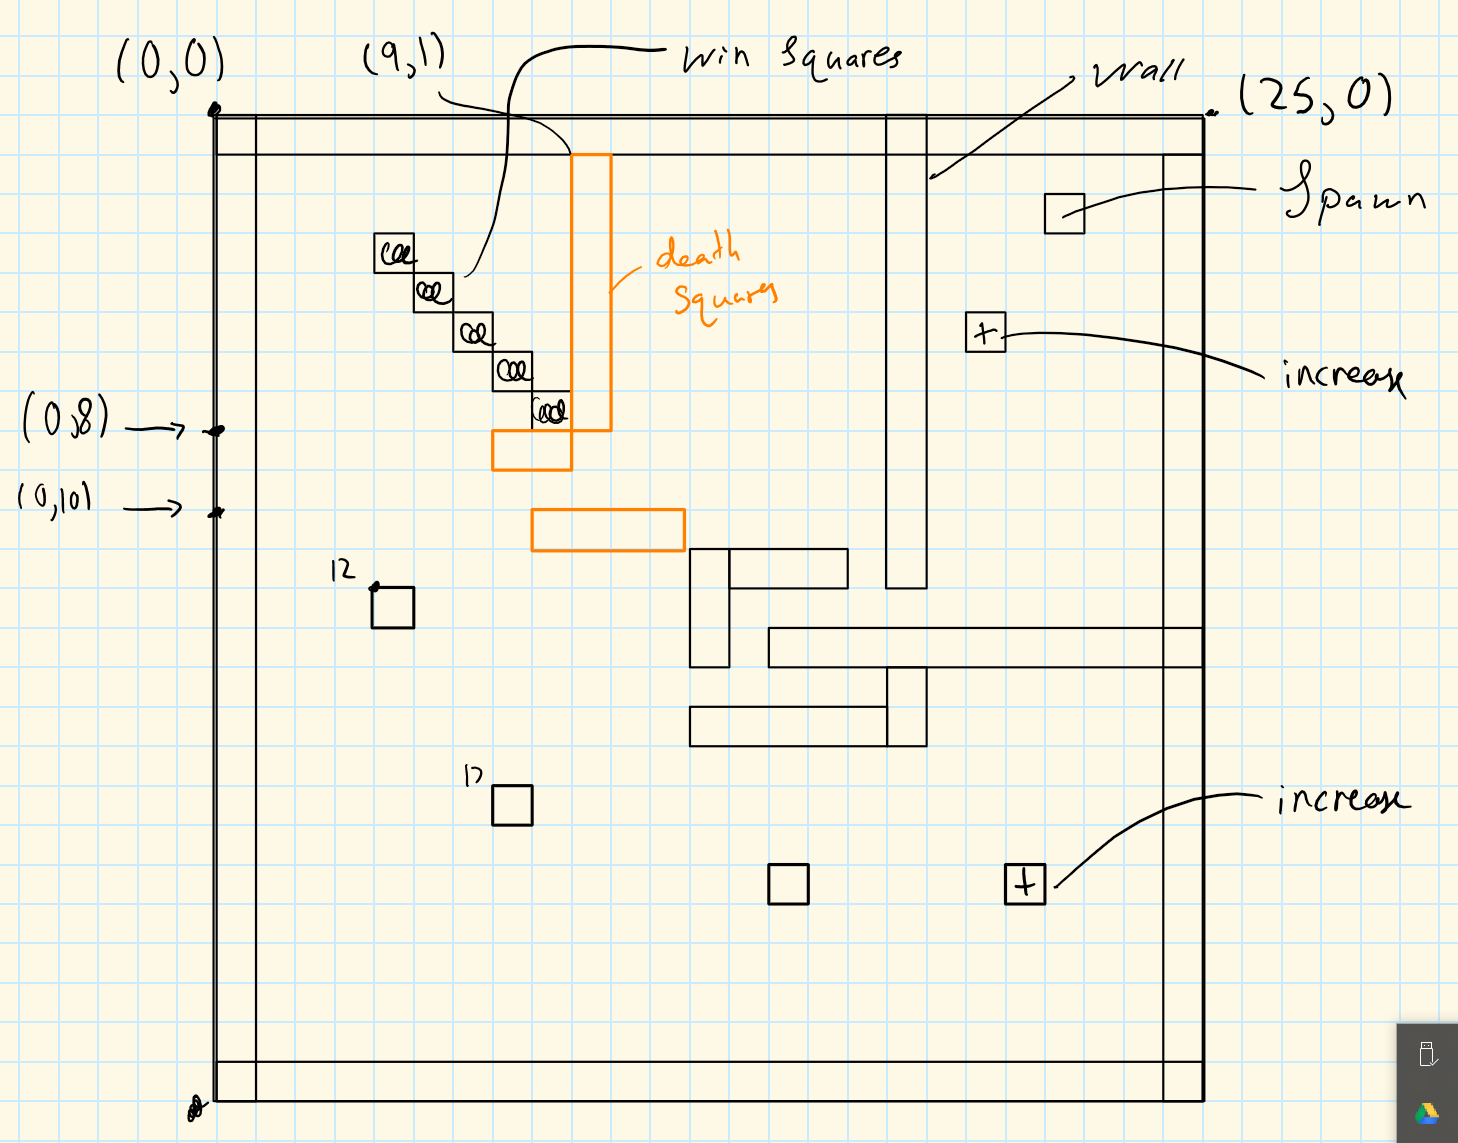 (0,0)
(9,1)
win squares
wall
(25,0)
Spawn
death
squares
+
increase
(0,8)
(0,10)
12
increase
+